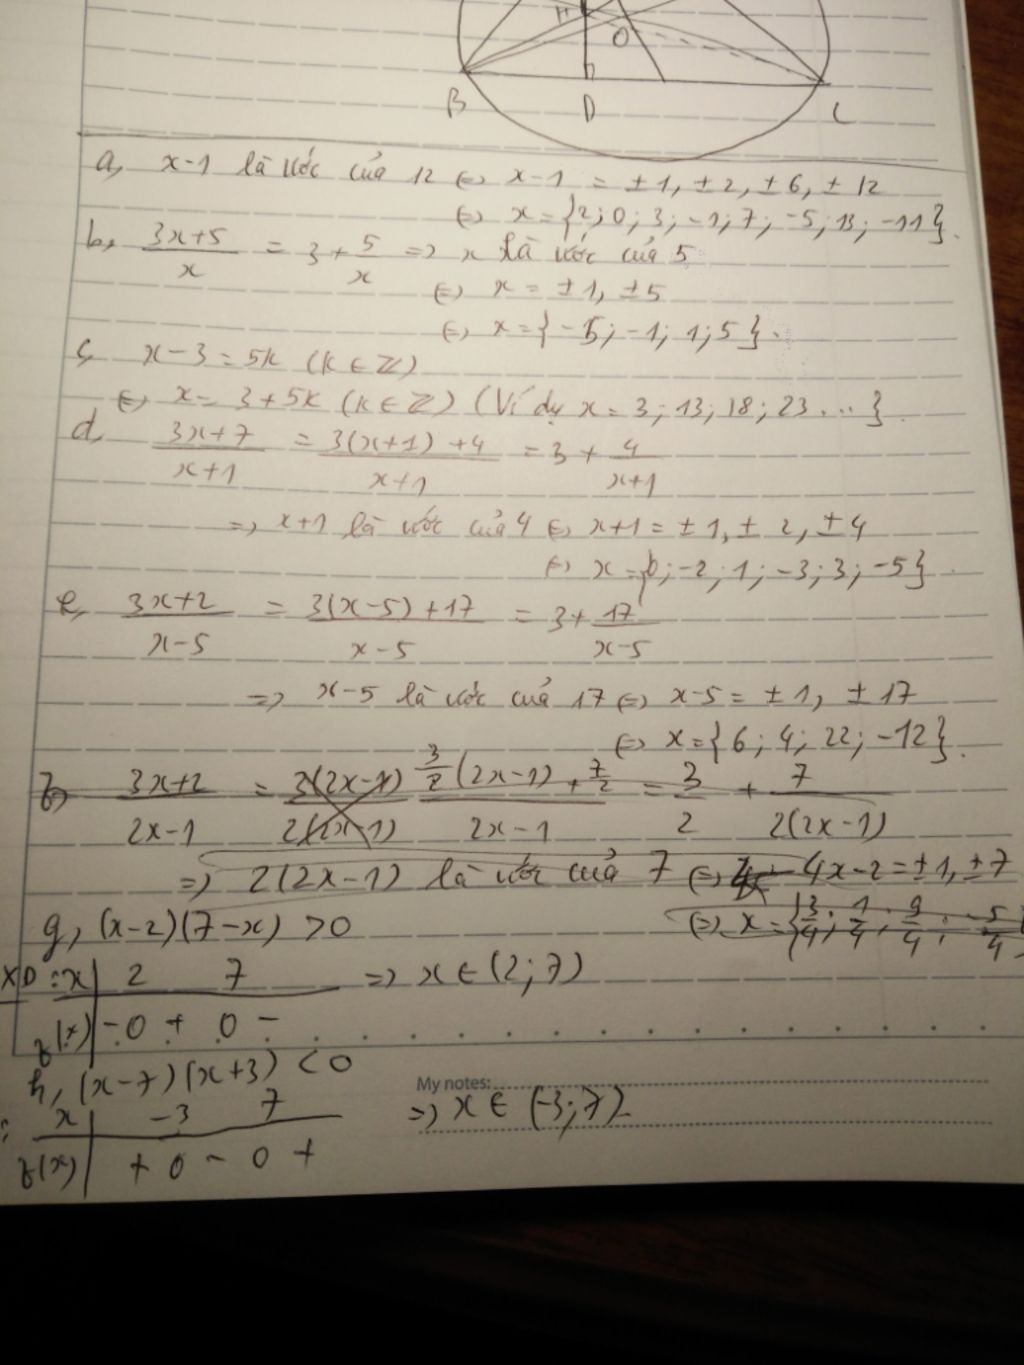 H
O
B D C
a, x-1 là ước của 12 ⇔ x-1 = ±1, ±2, ±6, ±12
⇔ x = {2; 0; 3; -1; 7; -5; 13; -11}.
b, (3x+5)/x = 3 + 5/x => x là ước của 5
⇔ x = ±1, ±5
⇔ x = {-5; -1; 1; 5}.
c, x-3 = 5k (k ∈ Z)
⇔ x = 3+5k (k ∈ Z) (Ví dụ x = 3; 13; 18; 23 ...}.
d, (3x+7)/(x+1) = (3(x+1)+4)/(x+1) = 3 + 4/(x+1)
=> x+1 là ước của 4 ⇔ x+1 = ±1, ±2, ±4
⇔ x = {0; -2; 1; -3; 3; -5}.
e, (3x+2)/(x-5) = (3(x-5)+17)/(x-5) = 3 + 17/(x-5)
=> x-5 là ước của 17 ⇔ x-5 = ±1, ±17
⇔ x = {6; 4; 22; -12}.
f, (3x+2)/(2x-1) = 3(2x-1)/2(2x-1) (3/2 (2x-1) + 7/2)/(2x-1) = 3/2 + 7/(2(2x-1))
=> 2(2x-1) là ước của 7 ⇔ 4x-2 = ±1, ±7
⇔ x = {3/4; 1/4; 9/4; -5/4}
g, (x-2)(7-x) > 0
XD: x | 2 7 => x ∈ (2; 7)
f(x) | - 0 + 0 -
h, (x-7)(x+3) < 0
My notes:
: x | -3 7 => x ∈ (-3; 7).
f(x) | + 0 - 0 +